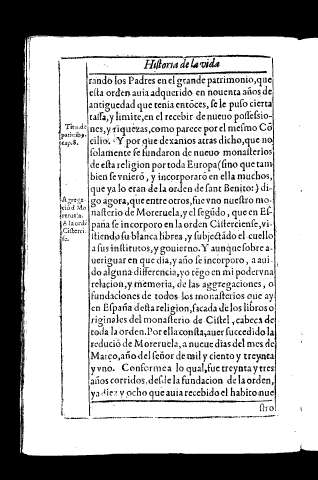 Historia de la vida
rando los Padres en el grande patrimonio, que
esta orden auia adquerido en nouenta años de
antiguedad que tenia entõces, se le puso cierta
tassa, y limite, en el recebir de nueuo possessio-
nes, y riquezas, como parece por el mesmo Cõ
cilio. Y por que dexamos atras dicho, que no
solamente se fundaron de nueuo monasterios
de esta religion por toda Europa (sino que tam
bien se vnierõ, y incorporarõ en ella muchos,
que ya lo eran de la orden de sant Benito:) di
go agora, que entre otros, fue vno nuestro mo
nasterio de Moreruela, y el segũdo, que en Es
paña se incorporo en la orden Cisterciense, vi-
stiendo su blanca librea, y subjectãdo el cuello
a sus institutos, y gouierno. Y aunque sobre a-
ueriguar en que dia, y año se incorporo, a aui-
do alguna differencia, yo tẽgo en mi poder vna
relacion, y memoria, de las aggregaciones, o
fundaciones de todos los monasterios que ay
en España desta religion, sacada de los libros o
riginales del monasterio de Cistel, cabeca de
toda la orden. Por ella consta, auer succedido la
reduciõ de Moreruela, a nueue dias del mes de
Março, año del señor de mil y ciento y treynta
y vno. Conforme a lo qual, fue treynta y tres
años corridos, desde la fundacion de la orden,
ya diez y ocho que auia recebido el habito nue
stro
Titu. de
cap. 8.
Agrega-
ciõ d Mo
reruela.
A la ordẽ
Cisterciẽ
se.